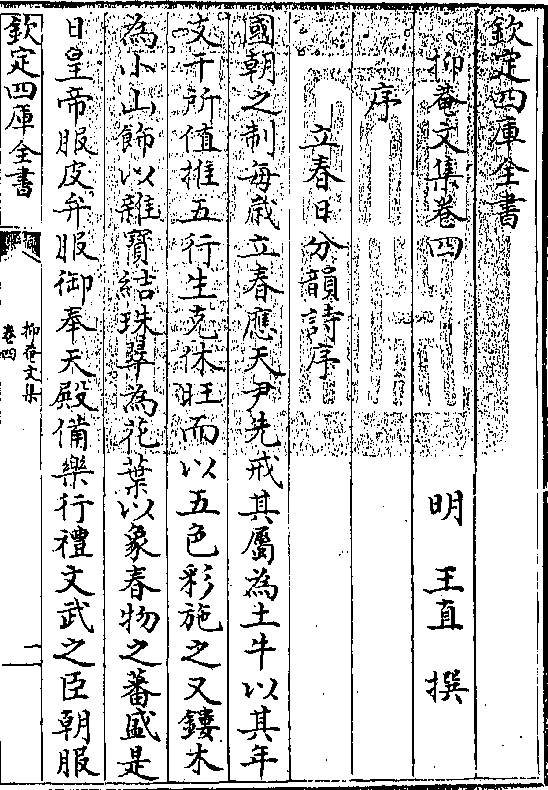 欽定四庫全書
抑菴文集卷四
明 王直 撰
序
立春日分韻詩序
國朝之制每歲立春應天尹先戒其屬為土牛以其年
支干所值推五行生克休旺而以五色彩施之又鏤木
為小山飾以雜寶結珠翠為花葉以象春物之蕃盛是
日皇帝服皮弁服御奉天殿備樂行禮文武之臣朝服
欽定四庫全書
抑菴文集
卷四
一